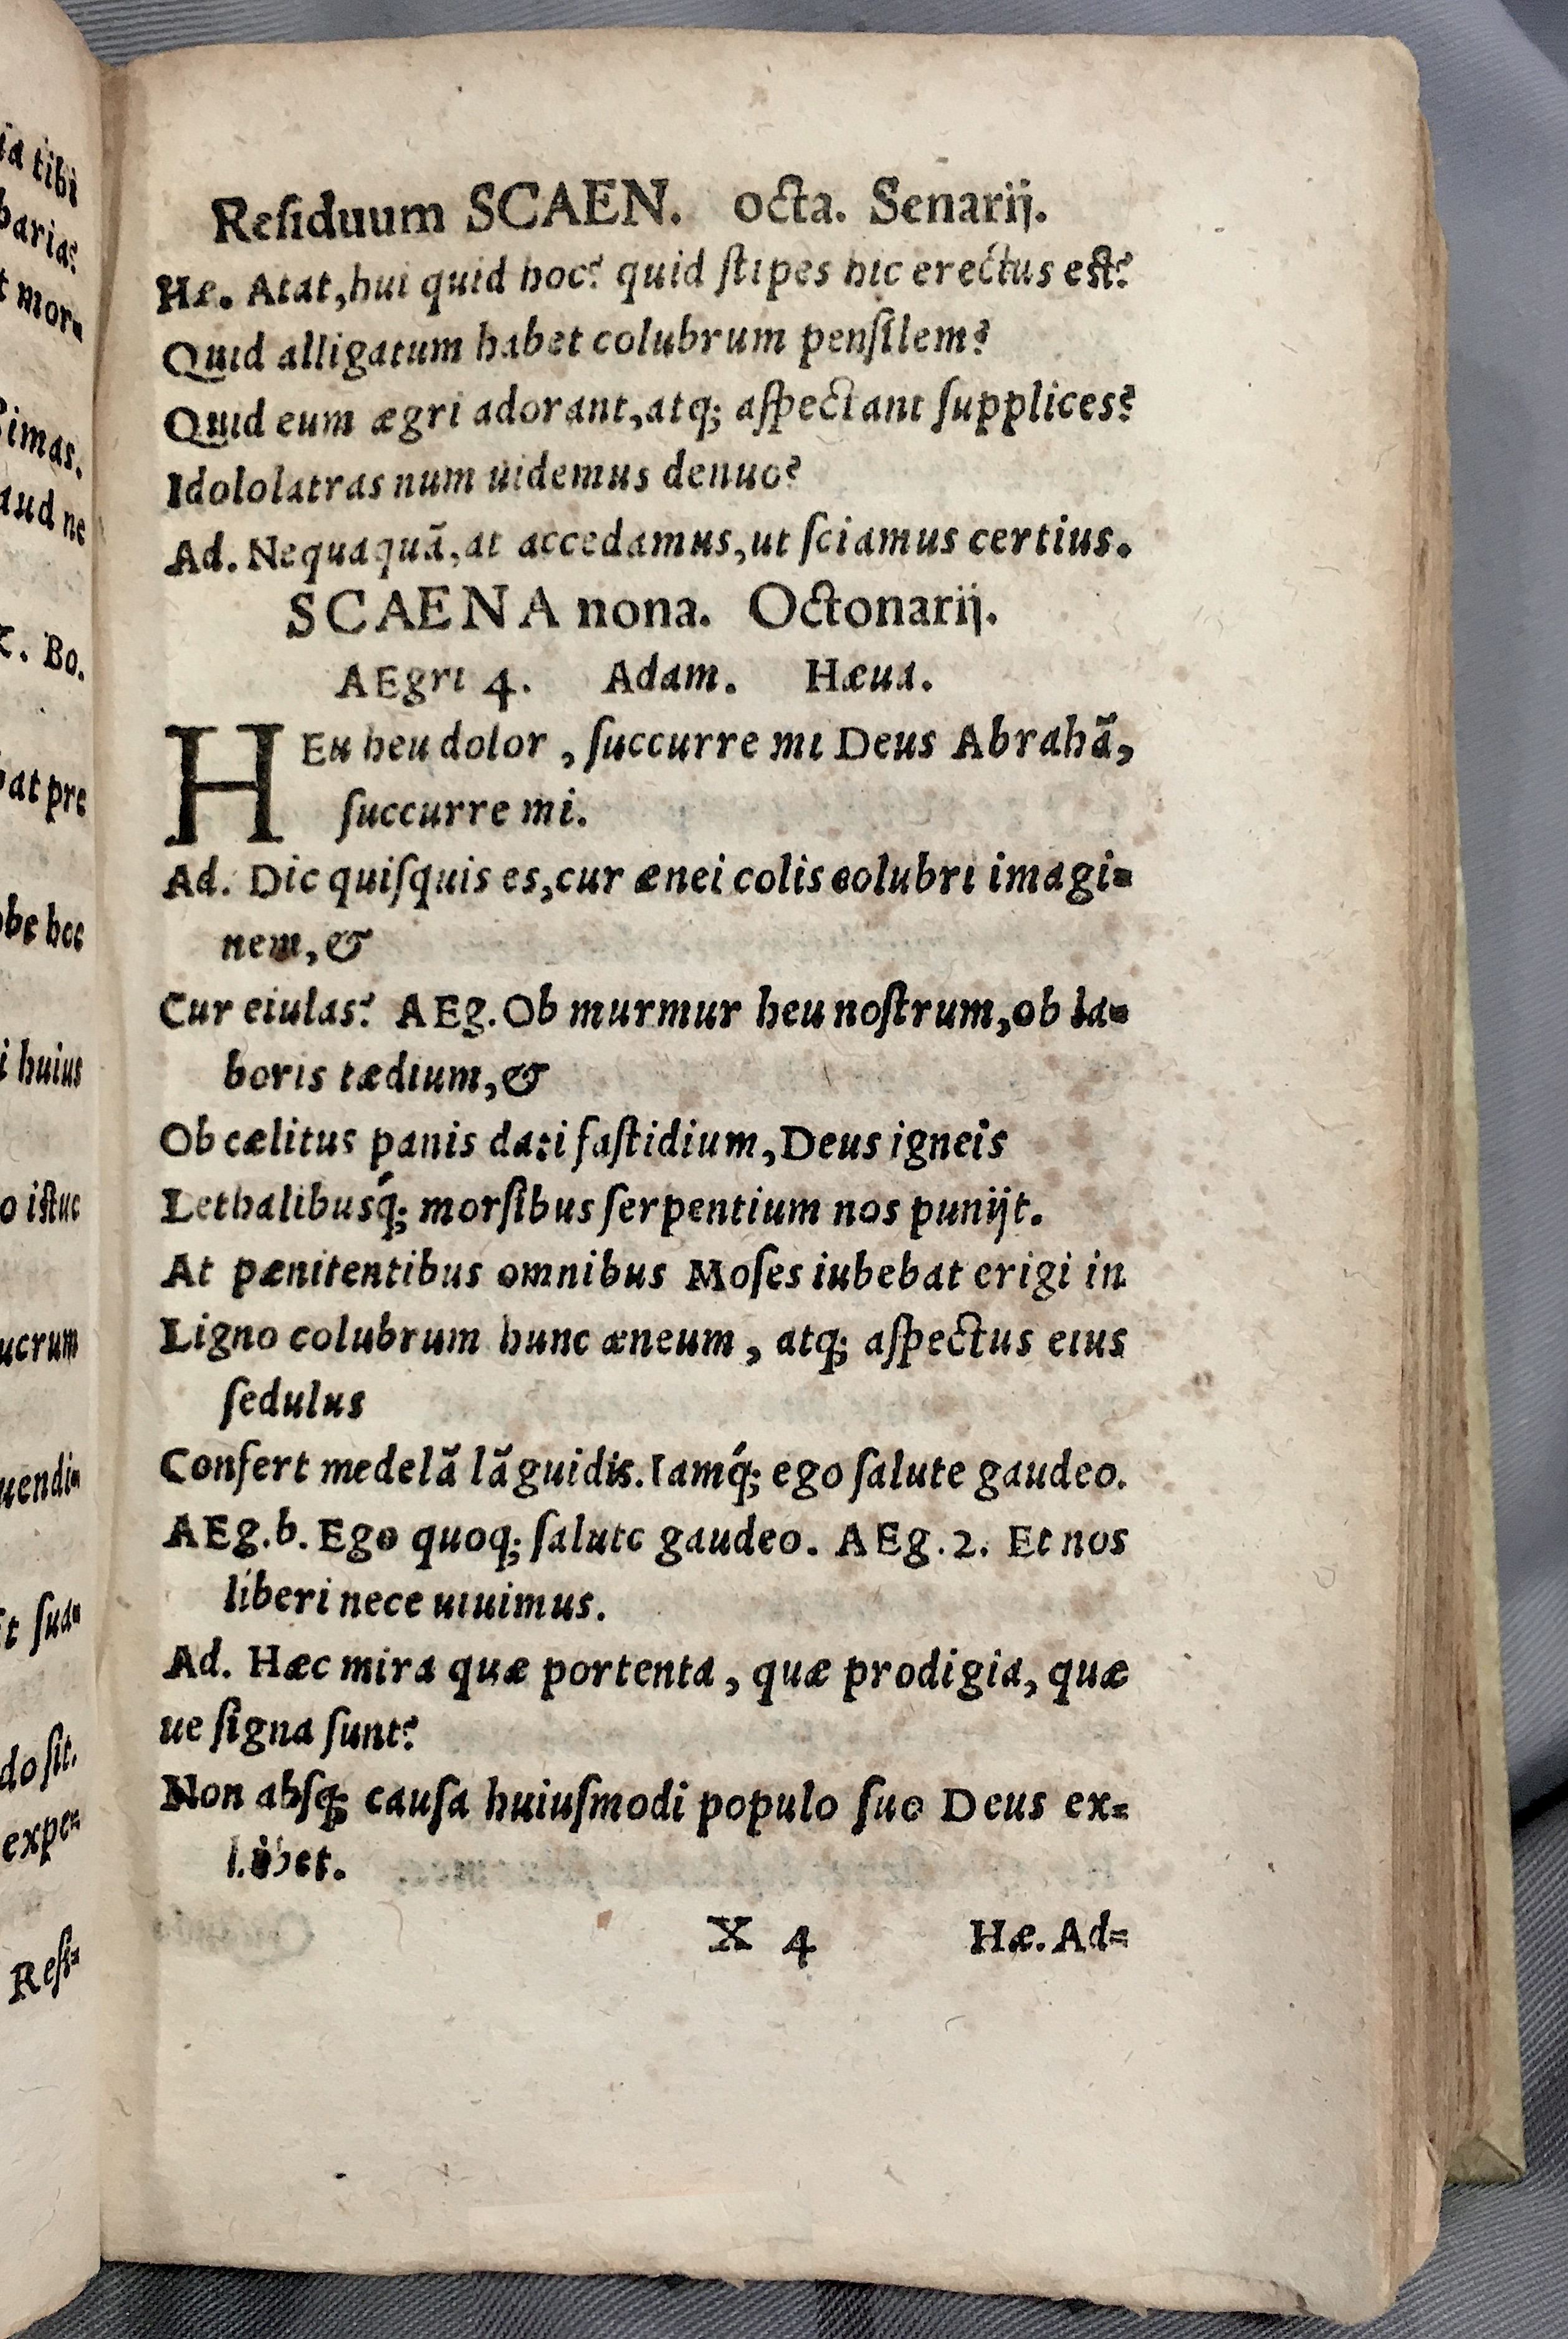 ia tibi
barias?
t mor=
Simas.
aud ne
Bo.
bat pre
obe hoc
i huius
o istuc
ucrum
uendi=
Et sua=
do sit.
expe=
Resi=
Residuum SCAEN. octa. Senarij.
Hæ. Atat, hui quid hoc? quid ſtipes hic erectus eſt?
Quid alligatum habet colubrum penſilem?
Quid eum ægri adorant, atq; aſpectant ſupplices?
Idololatras num uidemus denuo?
Ad. Nequaquã, at accedamus, ut ſciamus certius.
SCAENA nona. Octonarij.
AEgri 4. Adam. Hæua.
HEu heu dolor, ſuccurre mi Deus Abrahã,
ſuccurre mi.
Ad. Dic quiſquis es, cur ænei colis colubri imagi=
nem, &
Cur eiulas? AEg. Ob murmur heu noſtrum, ob la=
boris tædium, &
Ob cælitus panis dati faſtidium, Deus igneis
Lethalibusq́; morſibus ſerpentium nos punijt.
At pænitentibus omnibus Moſes iubebat erigi in
Ligno colubrum hunc æneum, atq; aſpectus eius
ſedulus
Confert medelã lãguidis. Iamq́; ego ſalute gaudeo.
AEg. b. Ego quoq; ſalute gaudeo. AEg. 2. Et nos
liberi nece uiuimus.
Ad. Hæc mira quæ portenta, quæ prodigia, quæ
ue ſigna ſunt?
Non abſq; cauſa huiuſmodi populo ſuo Deus ex=
hibet.
X 4 Hæ. Ad=